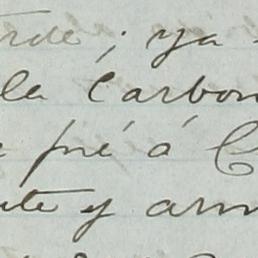 arde; ya
la Carbon
fué á C
nte y arm